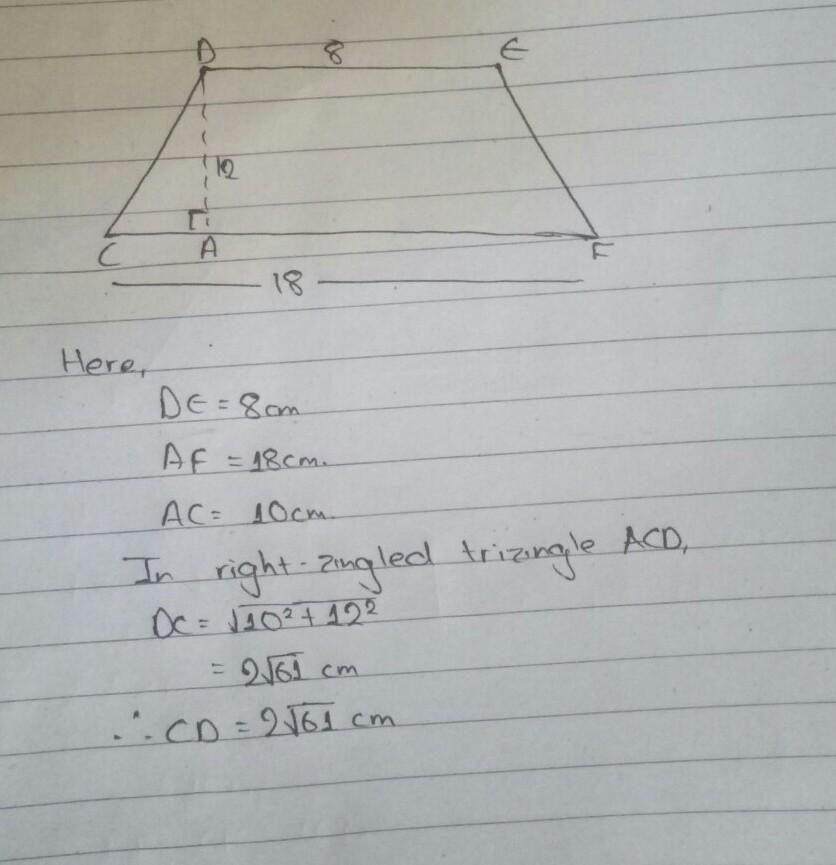 D 8 E
12
C A F
18
Here,
DE = 8cm
AF = 18cm.
AC = 10cm
In right-angled triangle ACD,
DC = √10² + 12²
= 2√61 cm
∴ CD = 2√61 cm